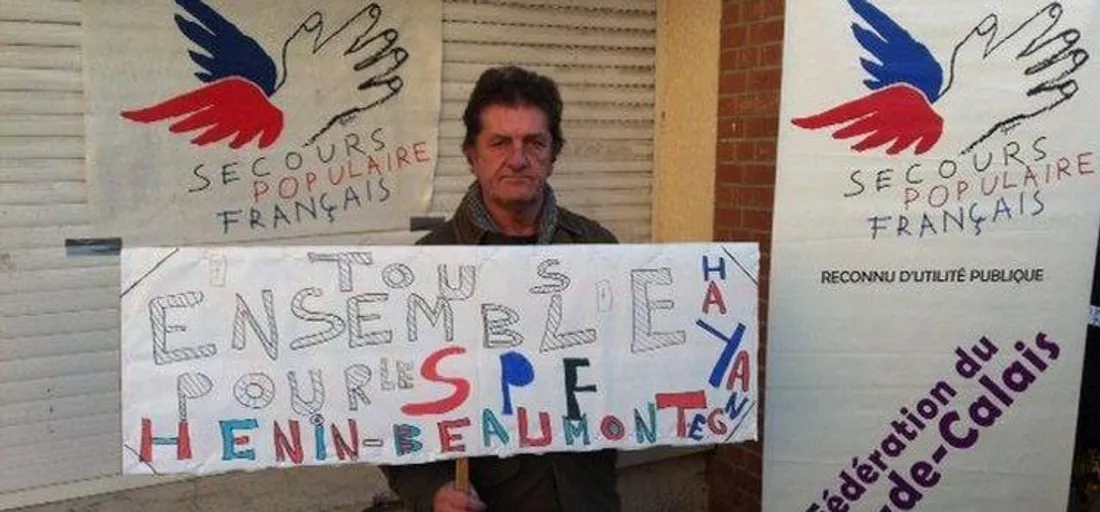 SECOURS
POPULAIRE
FRANÇAIS
TOUS
ENSEMBLE
POUR LE SPF
HENIN-BEAUMONT
HAYAN
TEGN
SECOURS
POPULAIRE
FRANÇAIS
RECONNU D'UTILITÉ PUBLIQUE
Fédération du
-de-Calais